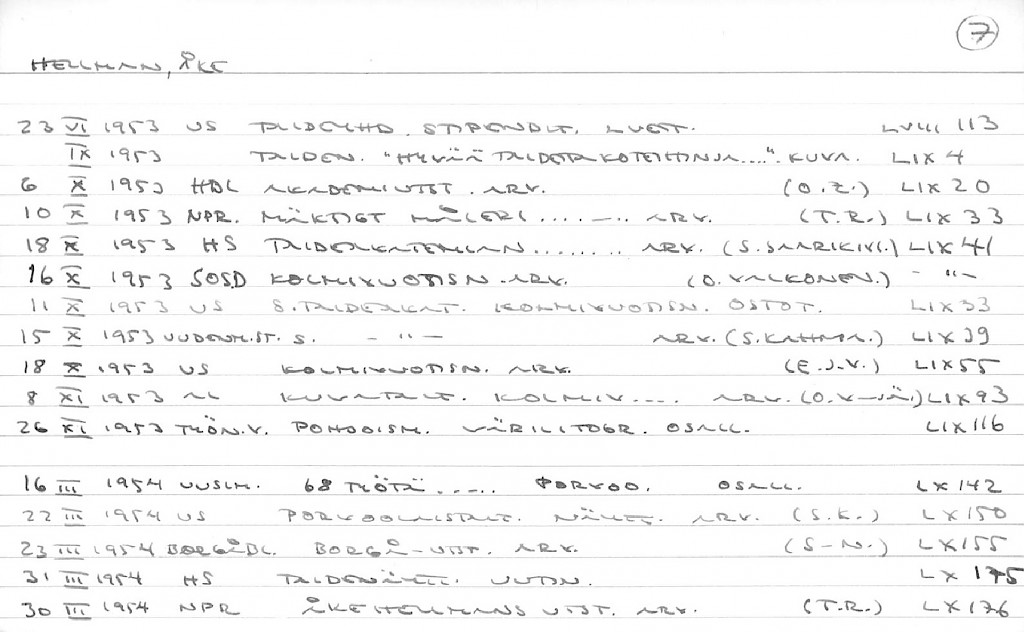 7
HELLMAN, ÅKE
23 VI 1953 US TAIDEYHD. STIPENDIT. LUETT. LVIII 113
IX 1953 TAIDEN. "HYVÄÄ TAIDETTA KOTEIHINSA....". KUVA. LIX 4
6 X 1953 HBL AKADEMIUTST. ARV. (O.Z.) LIX 20
10 X 1953 NPR. MÄKTIGT MÅLERI ......... ARV. (T.R.) LIX 33
18 X 1953 HS TAIDEAKATEMIAN......... ARV. (S. SAARIKIVI.) LIX 41
16 X 1953 SOSD KOLMIVUOTISN. ARV. (O. VALKONEN.) - "-
11 X 1953 US S. TAIDEAKAT. KOLMIVUOTISN. OSTOT. LIX 33
15 X 1953 UUDENM. ST. S. - "- ARV. (S. KAHMA.) LIX 39
18 X 1953 US KOLMIVUOTISN. ARV. (E.J.V.) LIX 55
8 XI 1953 AL KUVATAIT. KOLMIV.... ARV. (O. V-JÄ.) LIX 93
26 XI 1953 TYÖN.V. POHJOISM. VÄRILITOGR. OSALL. LIX 116
16 III 1954 UUSIM. 68 TYÖTÄ..... PORVOO. OSALL. LX 142
22 III 1954 US PORVOOLAISTAIT. NÄYTT. ARV. (S.K.) LX 150
23 III 1954 BORGÅBL. BORGÅ-UTST. ARV. (S-N.) LX 155
31 III 1954 HS TAIDENÄYTT. UUTIN. LX 175
30 III 1954 NPR ÅKE HELLMANS UTST. ARV. (T.R.) LX 176